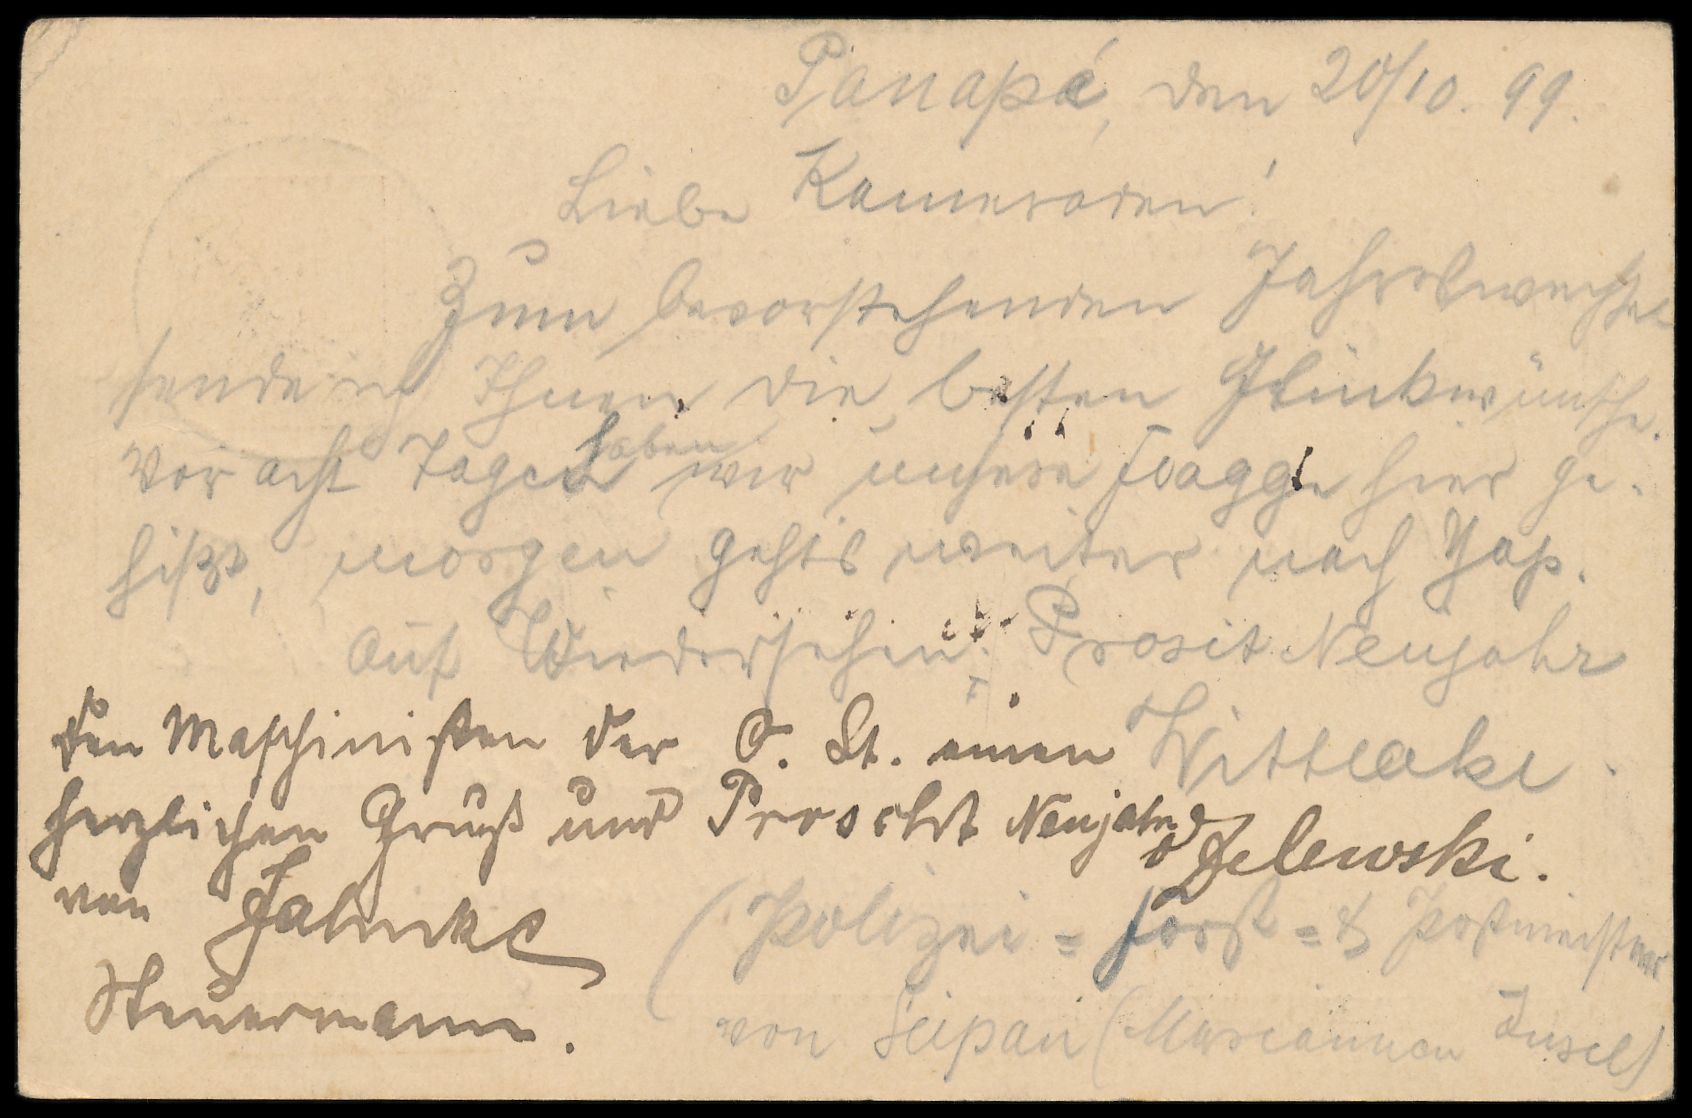 Panapé, den 20/10. 99.
Liebe Kameraden!
Zum bevorstehenden Jahreswechsel
sende ich Ihnen die besten Glückwünsche.
Vor acht Tagen haben wir unsere Flagge hier ge-
hißt, morgen gehts weiter nach Yap.
Auf Wiedersehen! Prosit Neujahr
Wittlake.
Den Maschinisten der O. St. einen
herzlichen Gruß und Proscht Neujahr
von Jahnke
Steuermann.
Zelewski.
(Polizei = Forst = & Postmeister
von Seipan (Mariannen Insel)